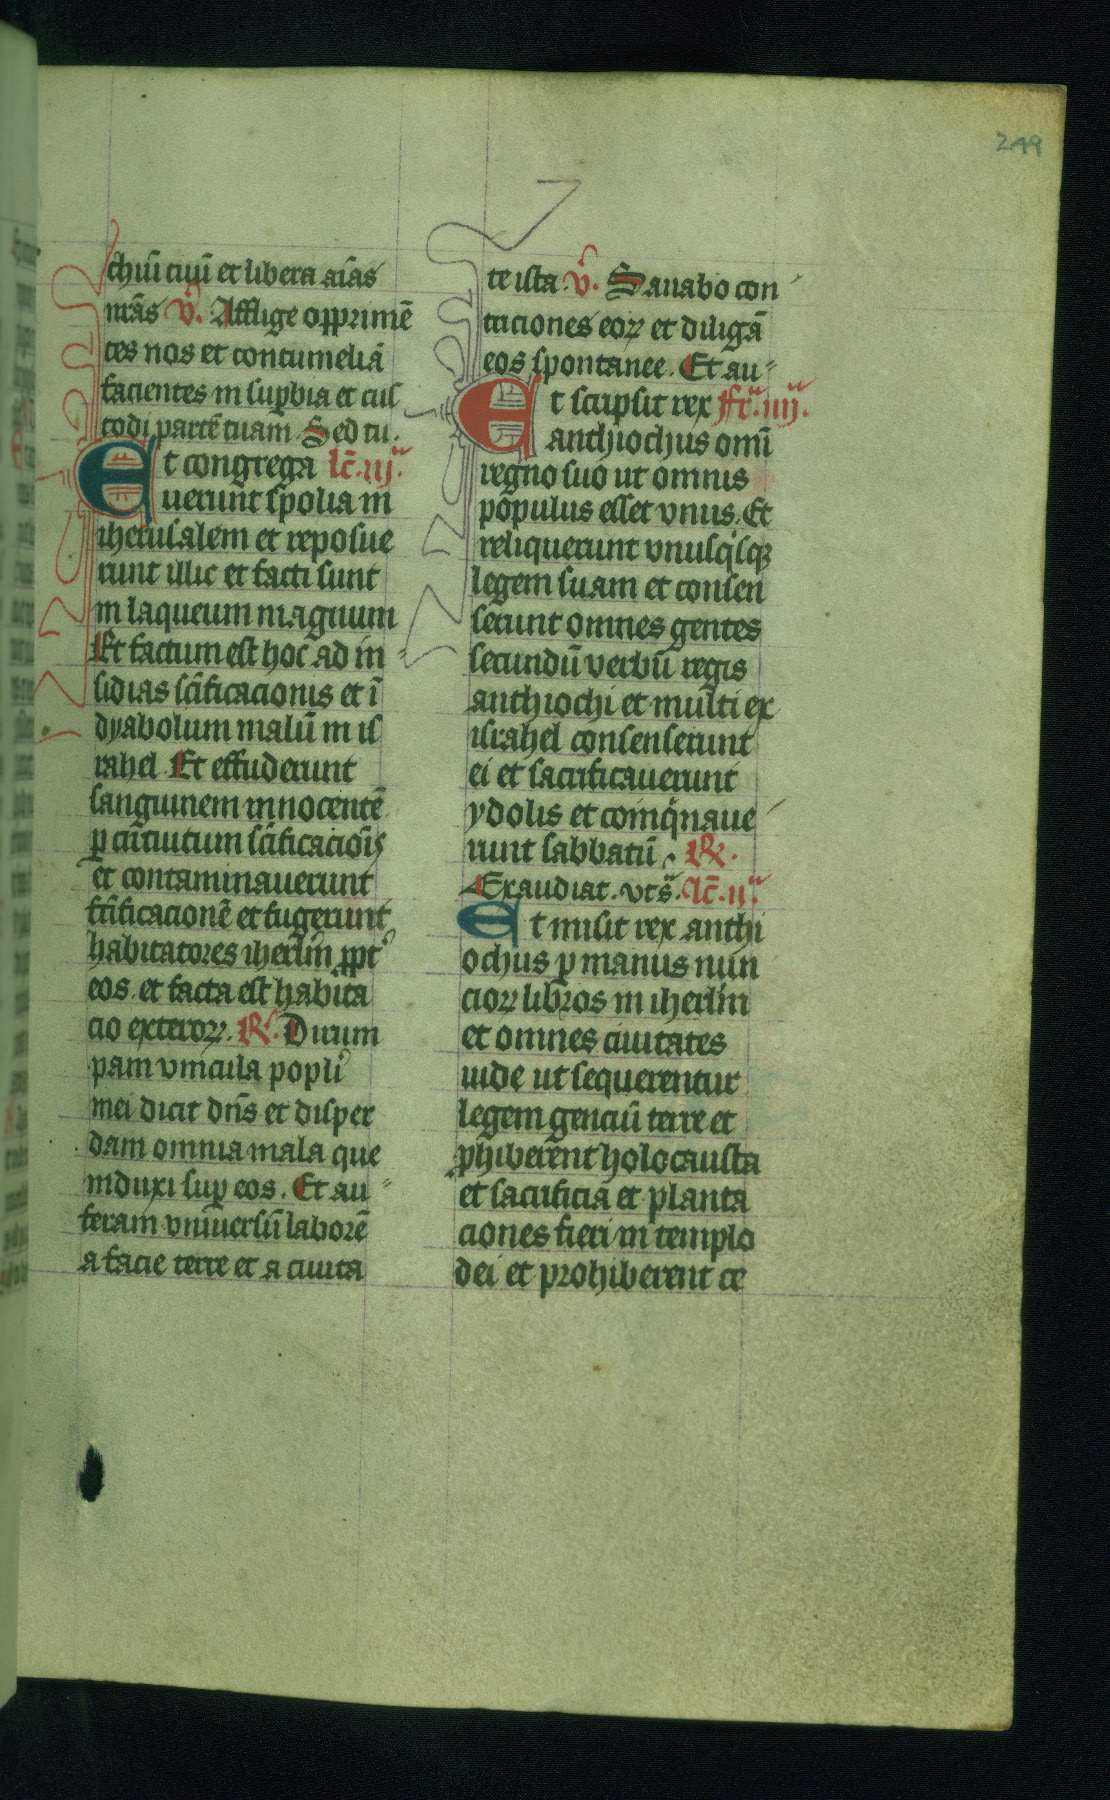 249
chiui tuū et libera aīas
nr̄as v̄. Afflige opprimē
tes nos et contumeliā
facientes in suꝑbia et cus
todi partē tuam. Sed tu.
Et congrega lc̄. iijᵃ.
uerunt spolia in
iherusalem et reposue
runt illic et facti sunt
in laqueum magnum
Et factum est hoc ad in
sidias sc̄ificacionis et ī
dyabolum malū in is
rahel. Et effuderunt
sanguinem innocentē
ꝑ circuitum sc̄ificacioīs
et contaminauerunt
sc̄ificacionē et fugerunt
habitatores iherlm̄ ꝓpt̄
eos. et facta est habita
cio exteroꝝ. R̸. Dirum
pam vincula popli
mei dicit dn̄s et disper
dam omnia mala que
induxi suꝑ eos. Et au
feram vniuersū laborē
a facie terre et a ciuita
te ista. v̄. Sanabo con
triciones eoꝝ et diligā
eos spontanee. Et au
Et scripsit rex fr̄ᵃ. iiijᵃ.
anthiochus omī
regno suo ut omnis
populus esset vnus. Et
reliquerunt vnusq̇sqꝫ
legem suam et consen
serunt omnes gentes
secundū verbū regis
anthiochi et multi ex
israhel consenserunt
ei et sacrificauerunt
ydolis et coinq̇naue
runt sabbatū. R̸.
Exaudiat. vt sᵃ. lc̄. ijᵃ.
Et misit rex anthi
ochus ꝑ manus nun
cioꝝ libros in iherlm̄
et omnes ciuitates
iude ut sequerentur
legem genciū terre et
ꝓhiberent holocausta
et sacrificia et planta
ciones fieri in templo
dei et prohiberent ce